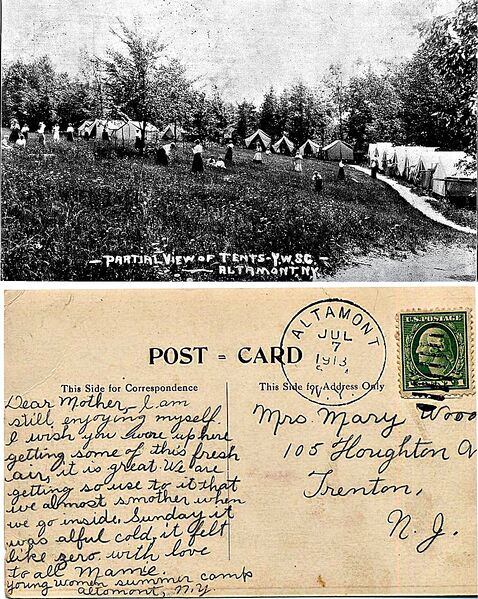 — PARTIAL VIEW OF TENTS - Y.W.S.C. —
— ALTAMONT NY.
POST = CARD
This Side for Correspondence
Dear Mother, I am
still enjoying myself.
I wish you were up here
getting some of this fresh
air, it is great. We are
getting so use to it that
we almost smother when
we go inside. Sunday it
was alful cold, it felt
like zero, with love
to all Mamie.
young women summer camp
altamont, N.Y.
ALTAMONT
JUL
7
1913
N.Y.
U.S. POSTAGE
This Side for Address Only
Mrs. Mary Wood
105 Houghton A
Trenton,
N. J.